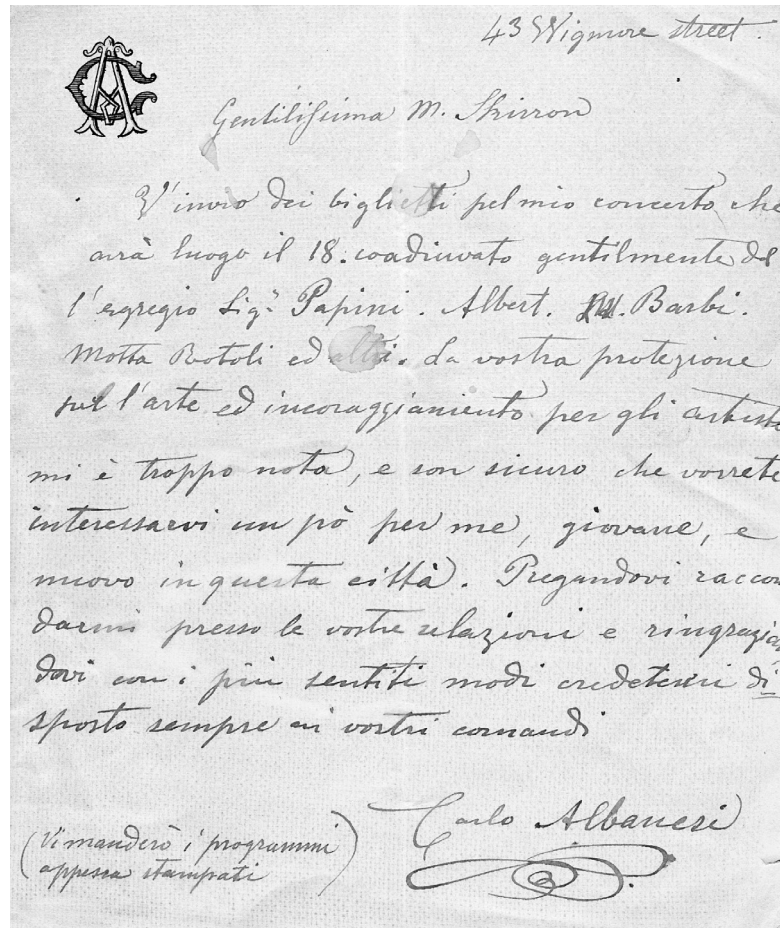 43 Wigmore street.
CA
Gentilissima M. Skirron
V'invio dei biglietti pel mio concerto che
avrà luogo il 18. coadiuvato gentilmente dal
l'egregio Sigr Papini. Albert. Barbi.
Motta Botoli ed altri. La vostra protezione
pell'arte ed incoraggiamento per gli artisti
mi è troppo nota, e son sicuro che vorrete
interessarvi un pò per me, giovane, e
nuovo in questa città. Pregandovi raccoman
darmi presso le vostre relazioni e ringrazian
dovi con i più sentiti modi credetemi di
sposto sempre ai vostri comandi
Carlo Albanesi
(Vi manderò i programmi
appena stampati)